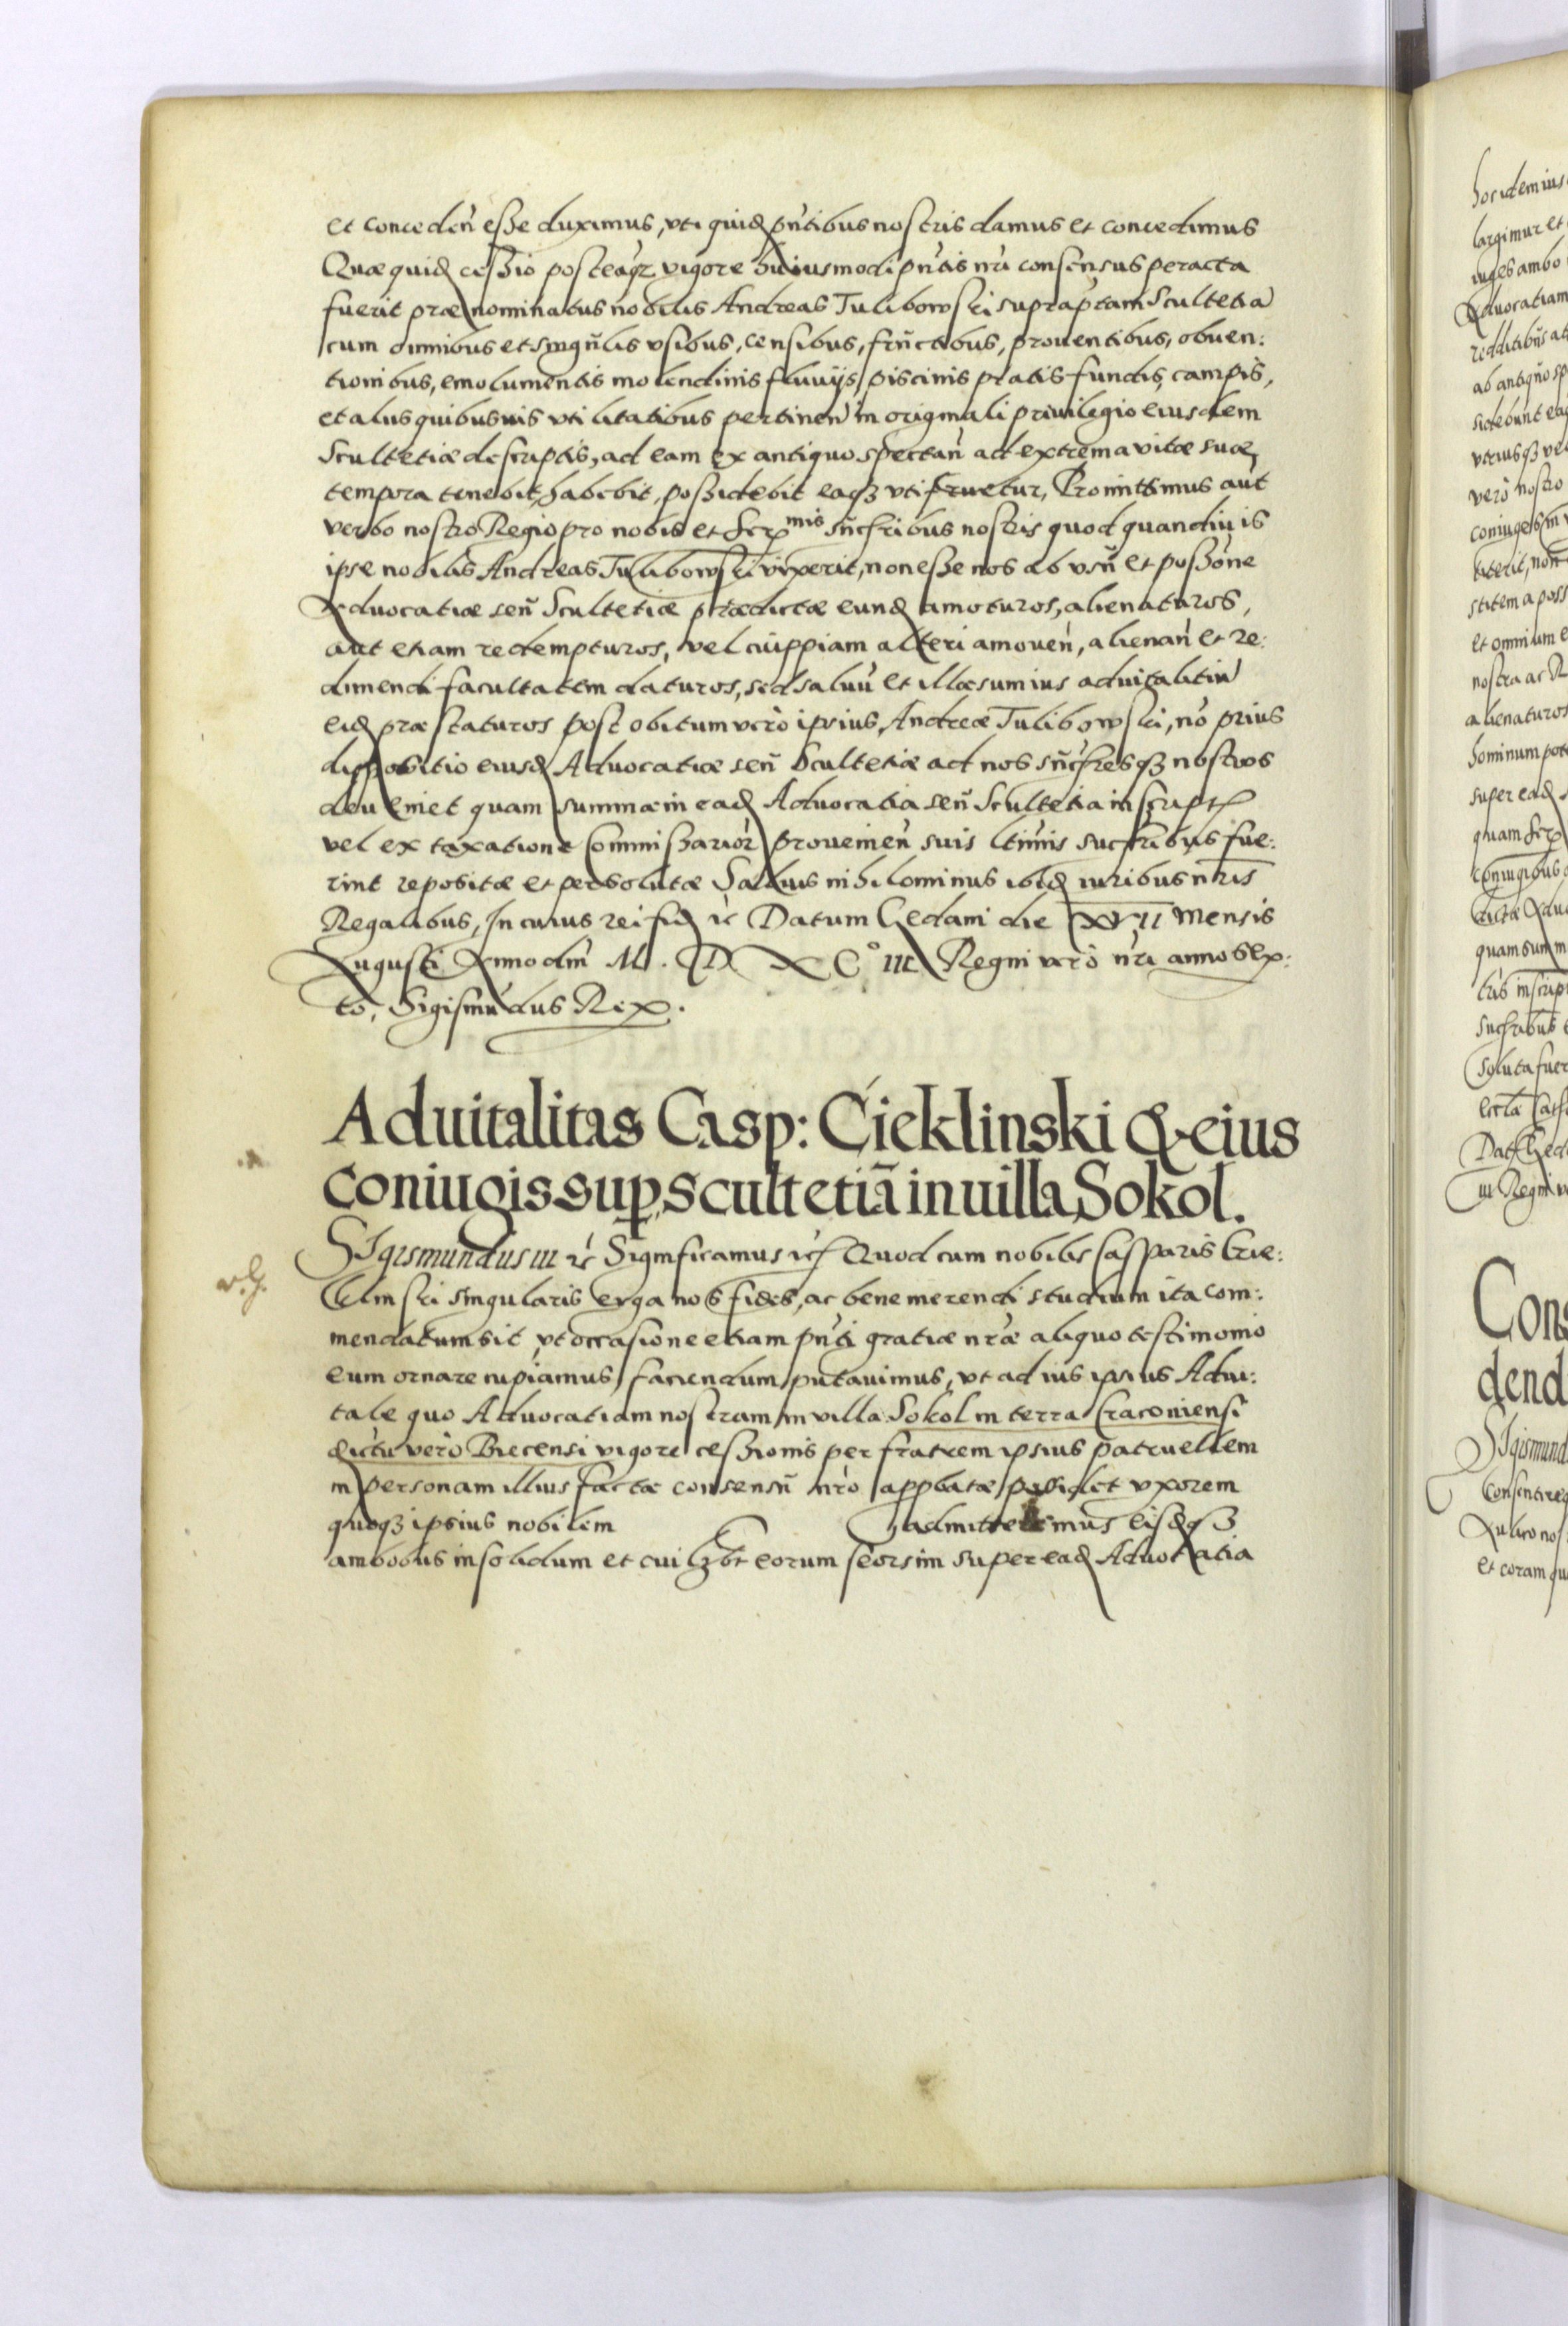 et conceden̄ esse duximus, vti quid pn̄tibus nostris damus et concedimus
Quæ quid cessio posteaqz vigore huiusmodi pn̄tis nr̄i consensus peracta
fuerit præ nominatus nobilis Andreas Tulibowski supraptam Scultetia
cum omnibus et singǔlis vsibus, censibus, frǔctibus, prouentibus, obuen:
tionibus, emolumentis molendinis fluuijs, piscinis pratis fundis, campis,
et alijs quibusuis vtilitatibus pertinen̄ in originali priuilegio eiusdem
Scultetiæ descriptis, ad eam ex antiquo spectan̄ ad extrema vitæ suæ
tempora tenebit, habebit, possidebit eaqz vti fruetur, Promittimus aut
verbo nostro Regio pro nobis et Ser mis sǔcsribus nostris quod quandiu is
ipse nobilis Andreas Tulibowski vixerit, non esse nos ab vsǔ et possōne
Aduocatiæ seǔ Scultetiæ prædictæ eund amoturos, alienaturos,
aut etiam redempturos, vel cuippiam alteri amouen̄, alienan̄ et re:
dimendi facultatem daturos, sed saluū et illæsum ius aduitalitiū
eid præstaturos post obitum verò ipsius Andreæ Tulibowski, nō prius
dispositio eiusd Aduocatiæ seǔ Scultetiæ ad nos sǔcsresqz nostros
deueniet quam summæ in ead Aduocatia seǔ Scultetia inscript
vel ex taxatione Commissarior prouenien̄ suis ltīmis sucsribus fue:
rint repositæ et persolutæ Saluis nihilominus ibid iuribus nr̄is
Regalibus, In cuius rei fid ic Datum Gedani die XVII Mensis
Augusti Anno dn̄i M. D XC° III Regni verò nr̄i anno sex:
to, Sigismūdus Rex.
Aduitalitas Casp: Cieklinski & eius
coniugis sup Scultetiā in uilla Sokol.
SIgismundus III ic Significamus ic Quod cum nobilis Casparis Cie:
klinski singularis erga nos fides, ac bene merendi studium ita com:
mendatum sit vt occasione etiam pn̄ti gratiæ nr̄æ aliquo testimonio
eum ornare cupiamus, faciendum putauimus, vt ad ius ipsius Adui:
tale quo Aduocatiam nostram in villa Sokol in terra Craconiensi
dictu verò Biecensi vigore cessionis per fratrem ipsius patruelem
in personam illius factæ consensǔ nr̄o appbatæ possidet vxorem
quoqz ipsius nobilem admitteremus eisdqz
ambobus insolidum et cuilzbt eorum seorsim super ead Aduocatia